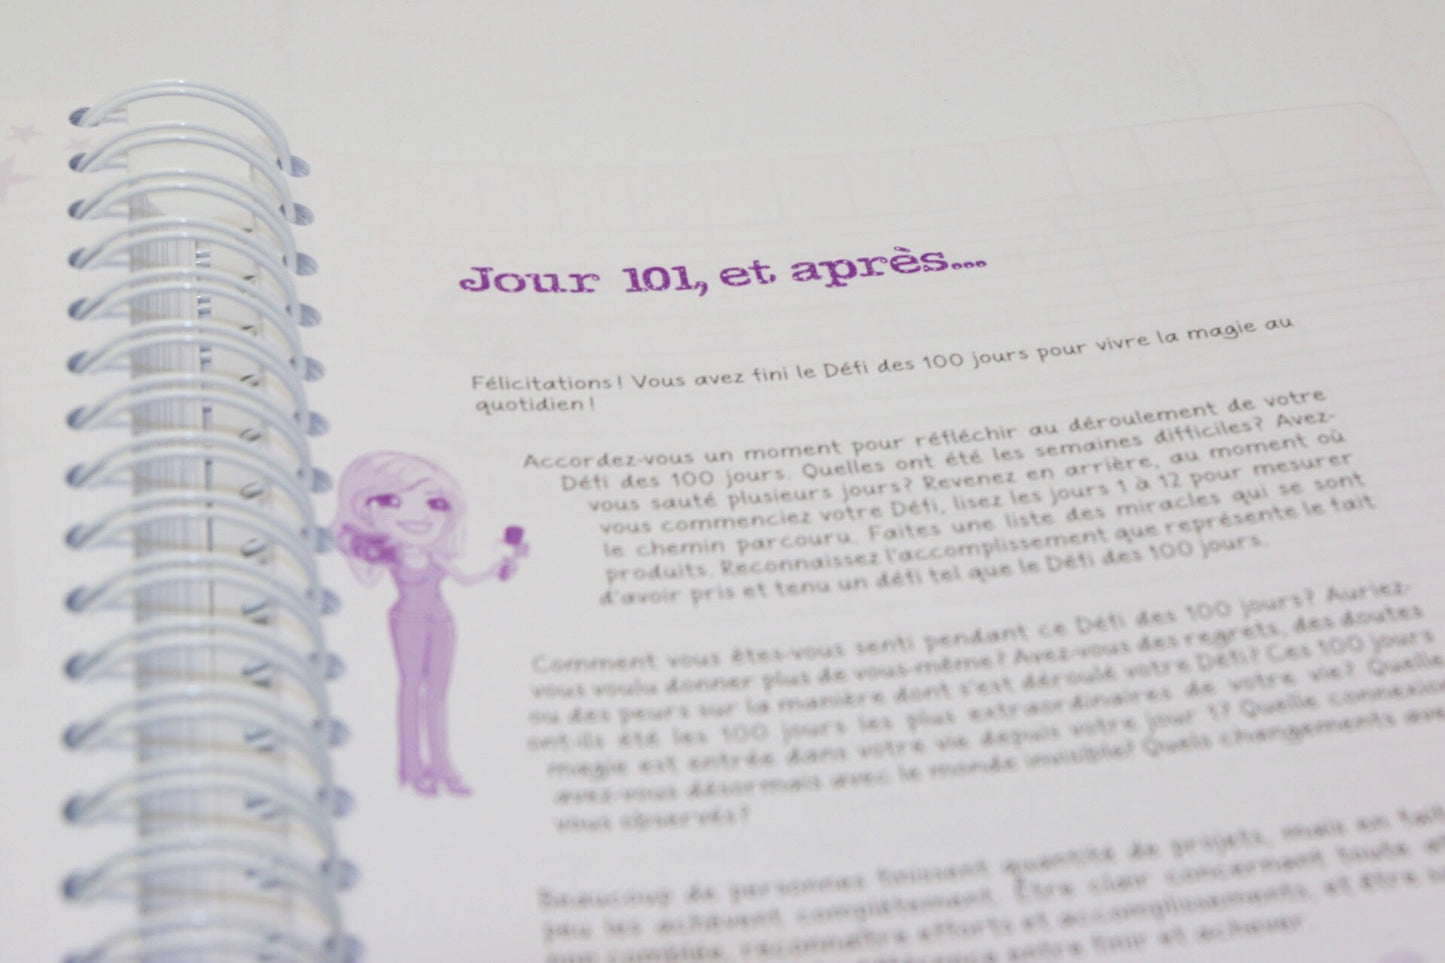 Jour 101, et après...
Félicitations ! Vous avez fini le Défi des 100 jours pour vivre la magie au
quotidien !
Accordez-vous un moment pour réfléchir au déroulement de votre
Défi des 100 jours. Quelles ont été les semaines difficiles? Avez-
vous sauté plusieurs jours? Revenez en arrière, au moment où
vous commenciez votre Défi, lisez les jours 1 à 12 pour mesurer
le chemin parcouru. Faites une liste des miracles qui se sont
produits. Reconnaissez l'accomplissement que représente le fait
d'avoir pris et tenu un défi tel que le Défi des 100 jours.
Comment vous êtes-vous senti pendant ce Défi des 100 jours? Auriez-
vous voulu donner plus de vous-même? Avez-vous des regrets, des doutes
ou des peurs sur la manière dont s'est déroulé votre Défi? Ces 100 jours
ont-ils été les 100 jours les plus extraordinaires de votre vie? Quelle
magie est entrée dans votre vie depuis votre jour 1? Quelle connexion
avez-vous désormais avec le monde invisible? Quels changements
vous observés?
Beaucoup de personnes finissent quantité de projets, mais en fait
peu les achèvent complètement. Être clair concernant toute
reconnaître efforts et accomplissements, et être
entre finir et achever.